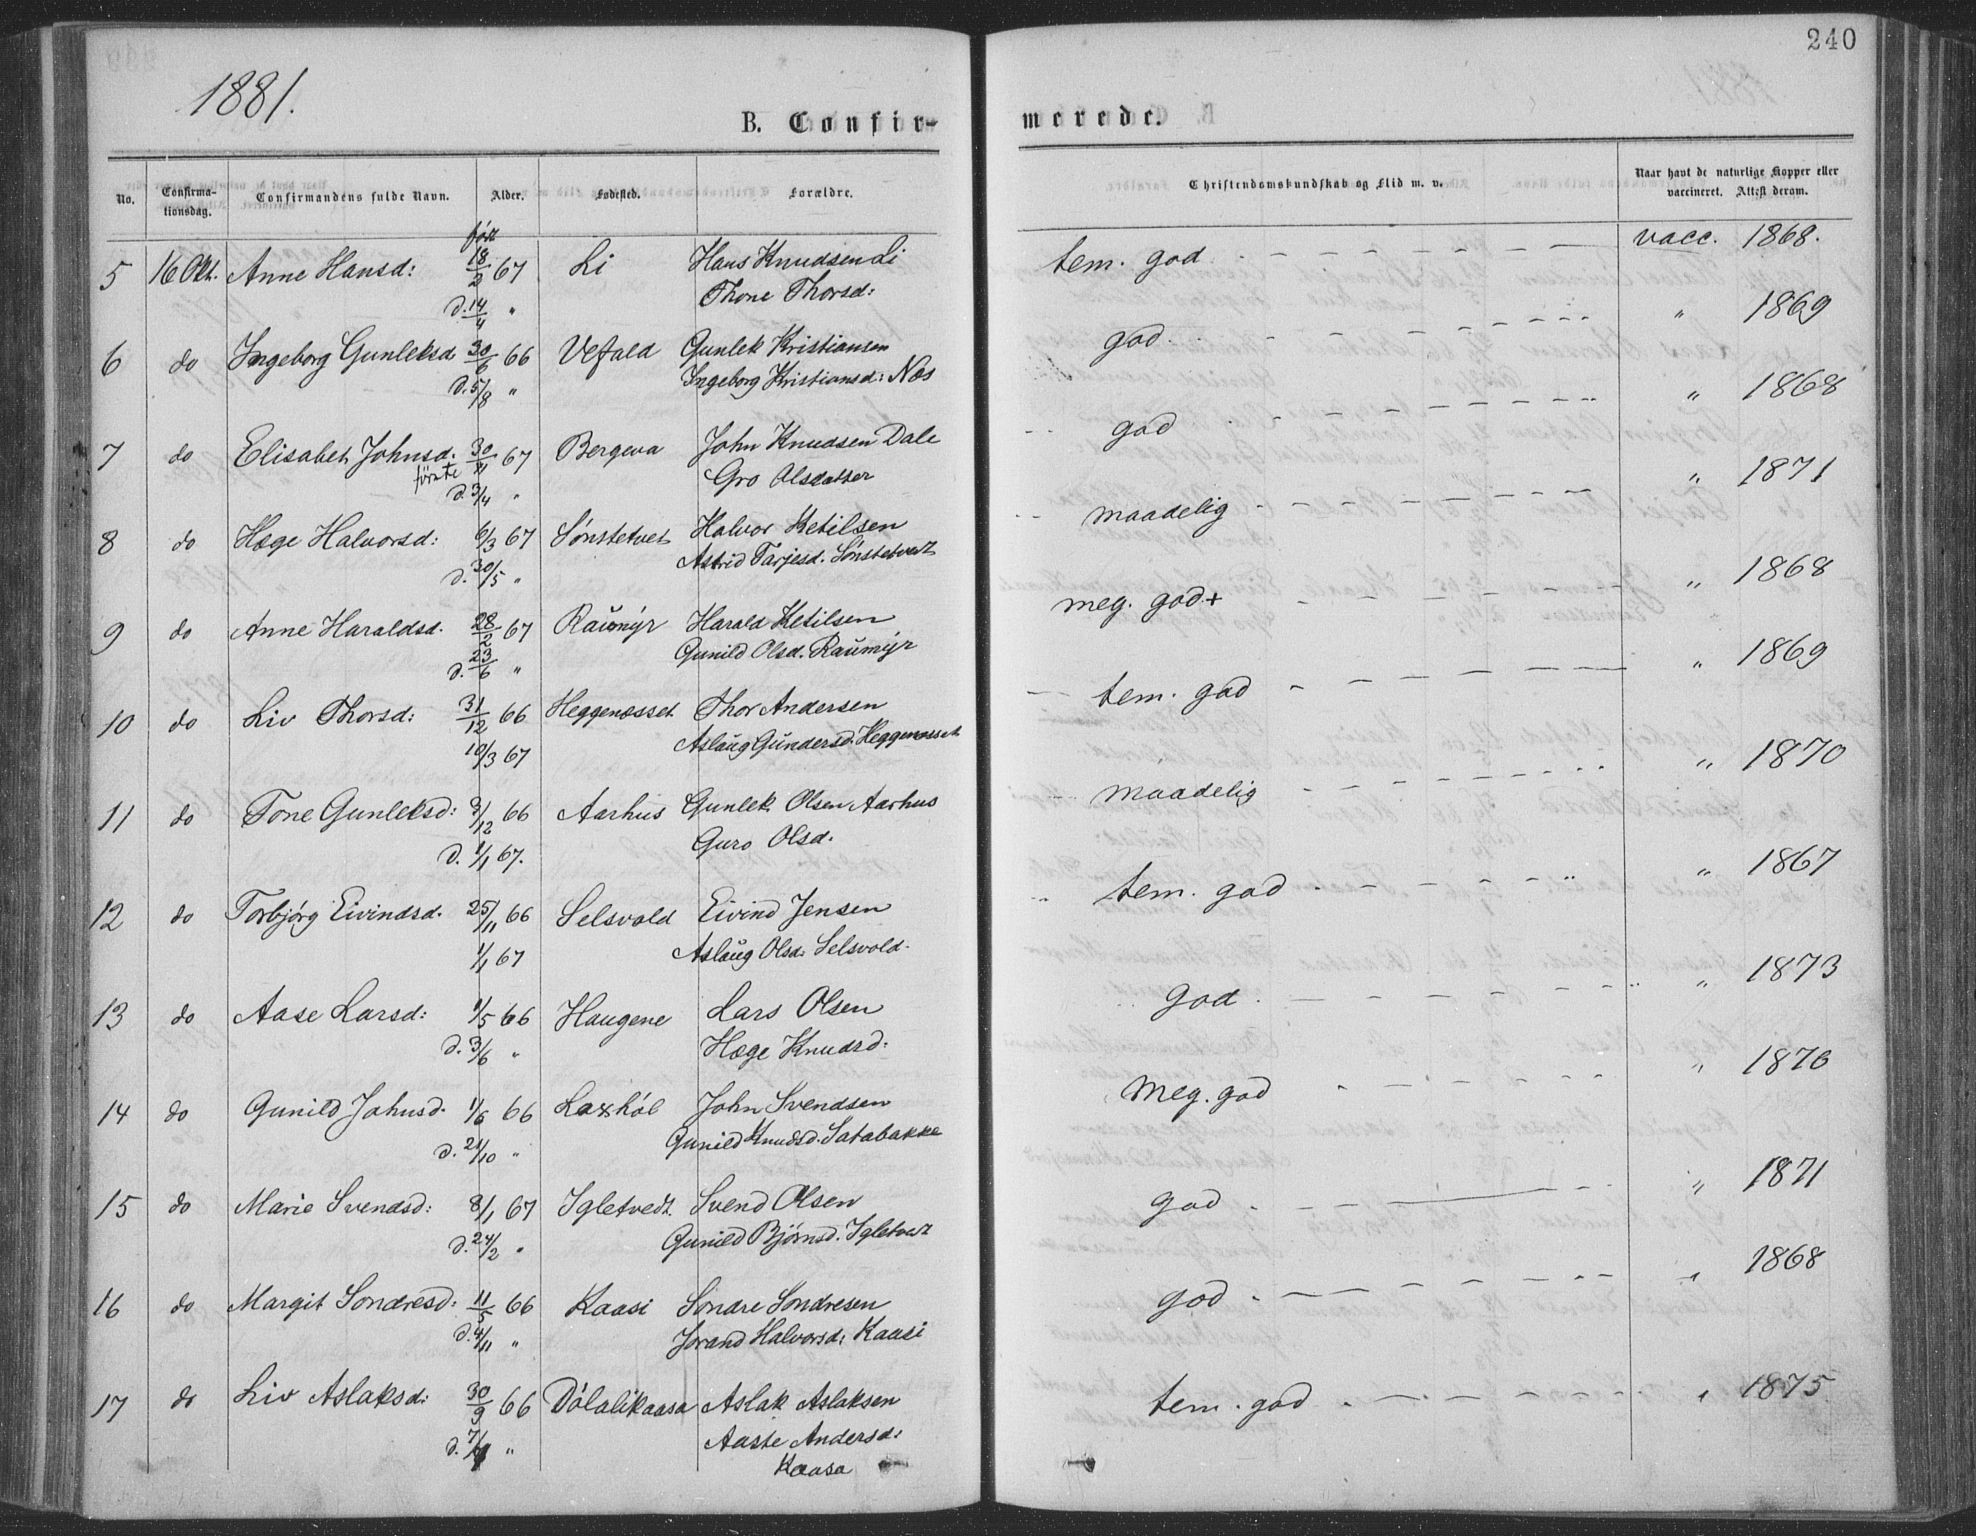 240
1881.
B. Confir-
merede.
No.
Confirma-
tionsdag.
Confirmandens fulde Navn.
Alder.
Fødested.
Forældre.
Christendomskundskab og Flid m. v.
Naar havt de naturlige Kopper eller
vaccineret. Attest derom.
født
5 16 Okt. Anne Hansd: 18/2 67 Li Hans Knudsen Li tem. god - - - - - vacc. 1868.
d. 14/4 " Thone Thorsd:
6 do Ingeborg Gunleksd 30/6 66 Vefald Gunlek Kristiansen god - - - - - " 1869
d. 5/8 " Ingeborg Kristiansd: Næs
7 do Elisabet Johnsd. 30/11 67 Bergeva John Knudsen Dale god - - - - - " 1868
d. 3/4 " Gro Olsdatter
8 do Hæge Halvorsd: 6/3 67 Sønstetvet Halvor Ketilsen maadelig - - - - - " 1871
d. 30/5 " Astrid Tarjesd. Sønstetvedt
9 do Anne Haraldsd. 28/2 67 Raumyr Harald Ketilsen meg. god + - - - - - " 1868
d. 23/6 " Gunild Olsd. Raumyr
10 do Liv Thorsd: 31/12 66 Heggenæsset Thor Andersen tem. god - - - - - " 1869
10/3 67 Aslaug Gundersd. Heggenæsset
11 do Tone Gunleksd: 3/12 66 Aarhus Gunlek Olsen Aarhus maadelig - - - - - " 1870
d. 1/1 67. Guro Olsd.
12 do Torbjørg Eivindsd. 25/11 66 Selsvold Eivind Jensen tem. god - - - - - " 1867
1/1 67 Aslaug Olsd: Selsvold.
13 do Aase Larsd: 1/5 66 Haugene Lars Olsen god - - - - - " 1873
d. 3/6 " Hæge Knudsd:
14 do Gunild Johnsd. 1/6 66 Laxhól John Svendsen meg. god - - - - - " 1876
d. 21/10 " Gunild Knudsd. Satabakke
15 do Marie Svendsd: 8/1 67 Igletvedt. Svend Olsen god - - - - - " 1871
d. 24/2 " Gunild Bjørnsd. Igletvedt
16 do Margit Sondresd: 11/5 66 Kaasi Sondre Sondresen god - - - - - " 1868
d. 4/11 " Jorand Halvorsd: Kaasi
17 do Liv Aslaksd: 30/9 66 Dólalikaasa Aslak Aslaksen tem. god - - - - - " 1875
d. " Aaste Andersd:
Kaasa